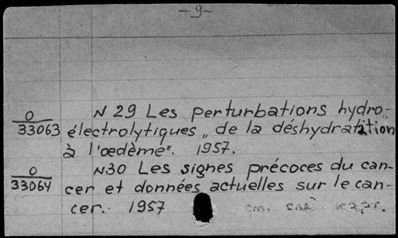 -9-
N 29 Les perturbations hydro-
O
33063 électrolytiques „ de la déshydratation
à l'œdème". 1957.
O
33064 N30 Les signes précoces du can-
cer et données actuelles sur le can-
cer. 1957